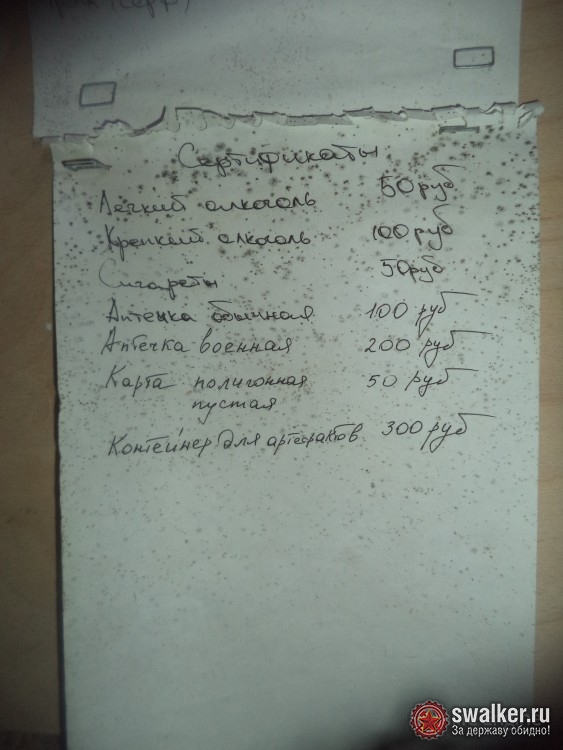 Сертификаты
Легкий алкоголь 50 руб
Крепкий алкоголь 100 руб
Сигареты 50 руб
Аптечка обычная 100 руб
Аптечка военная 200 руб
Карта полигонная 50 руб
пустая
Контейнер для артефактов 300 руб
swalker.ru
За державу обидно!